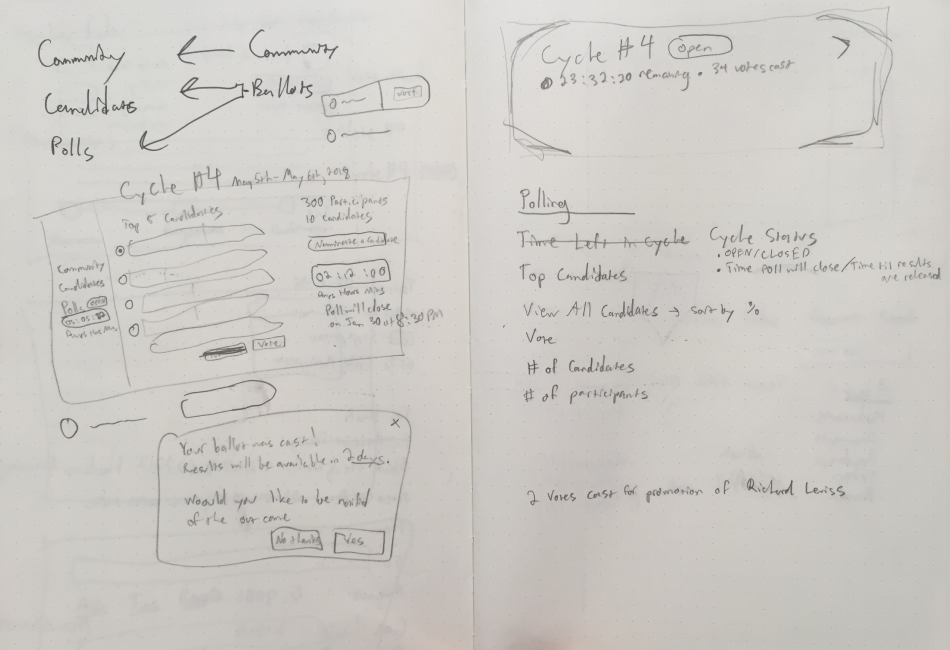 Community
Community
Candidates
Ballots
Polls
Vote
Cycle #4 May 5th - May 6th, 2018
Top 5 Candidates
300 Participants
10 Candidates
Nominate a Candidate
02 : 12 : 00
Days Hours Mins
Poll will close
on Jan 30 at 8:30 PM
Community
Candidates
Polls
Vote
Your ballot was cast!
Results will be available in 2 days.
Would you like to be notified
of the out come
No thanks
Yes
Cycle #4 Open
23:32:20 remaining • 34 votes cast
Polling
Time Left in Cycle
Cycle Status
• OPEN/CLOSED
• Time poll will close / Time til results
are released
Top Candidates
View All Candidates → sort by %
Vote
# of Candidates
# of participants
2 votes cast for promotion of Richard